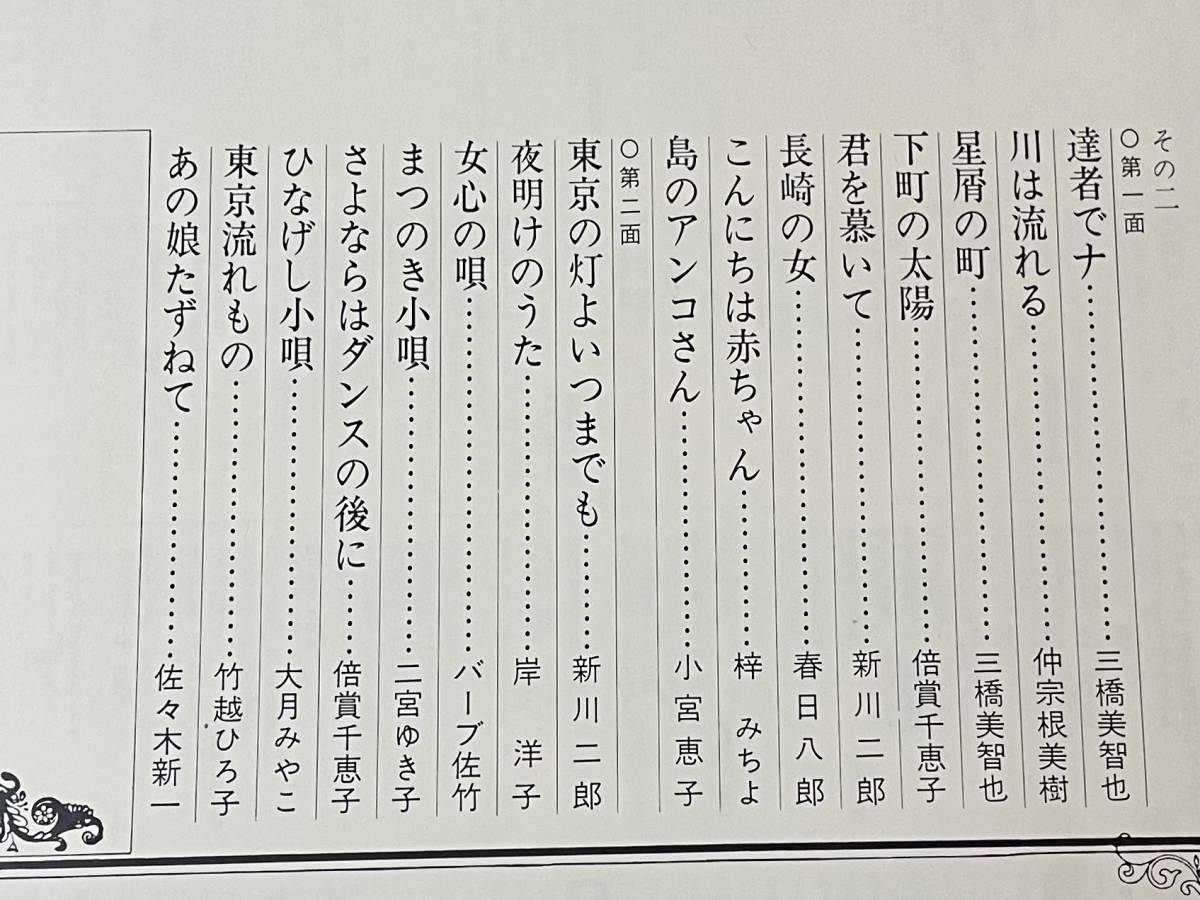 その二
○第一面
達者でナ……………………三橋美智也
川は流れる…………………仲宗根美樹
星屑の町……………………三橋美智也
下町の太陽…………………倍賞千恵子
君を慕いて…………………新川二郎
長崎の女……………………春日八郎
こんにちは赤ちゃん………梓みちよ
島のアンコさん……………小宮恵子
○第二面
東京の灯よいつまでも……新川二郎
夜明けのうた………………岸洋子
女心の唄……………………バーブ佐竹
まつのき小唄………………二宮ゆき子
さよならはダンスの後に…倍賞千恵子
ひなげし小唄………………大月みやこ
東京流れもの………………竹越ひろ子
あの娘たずねて……………佐々木新一